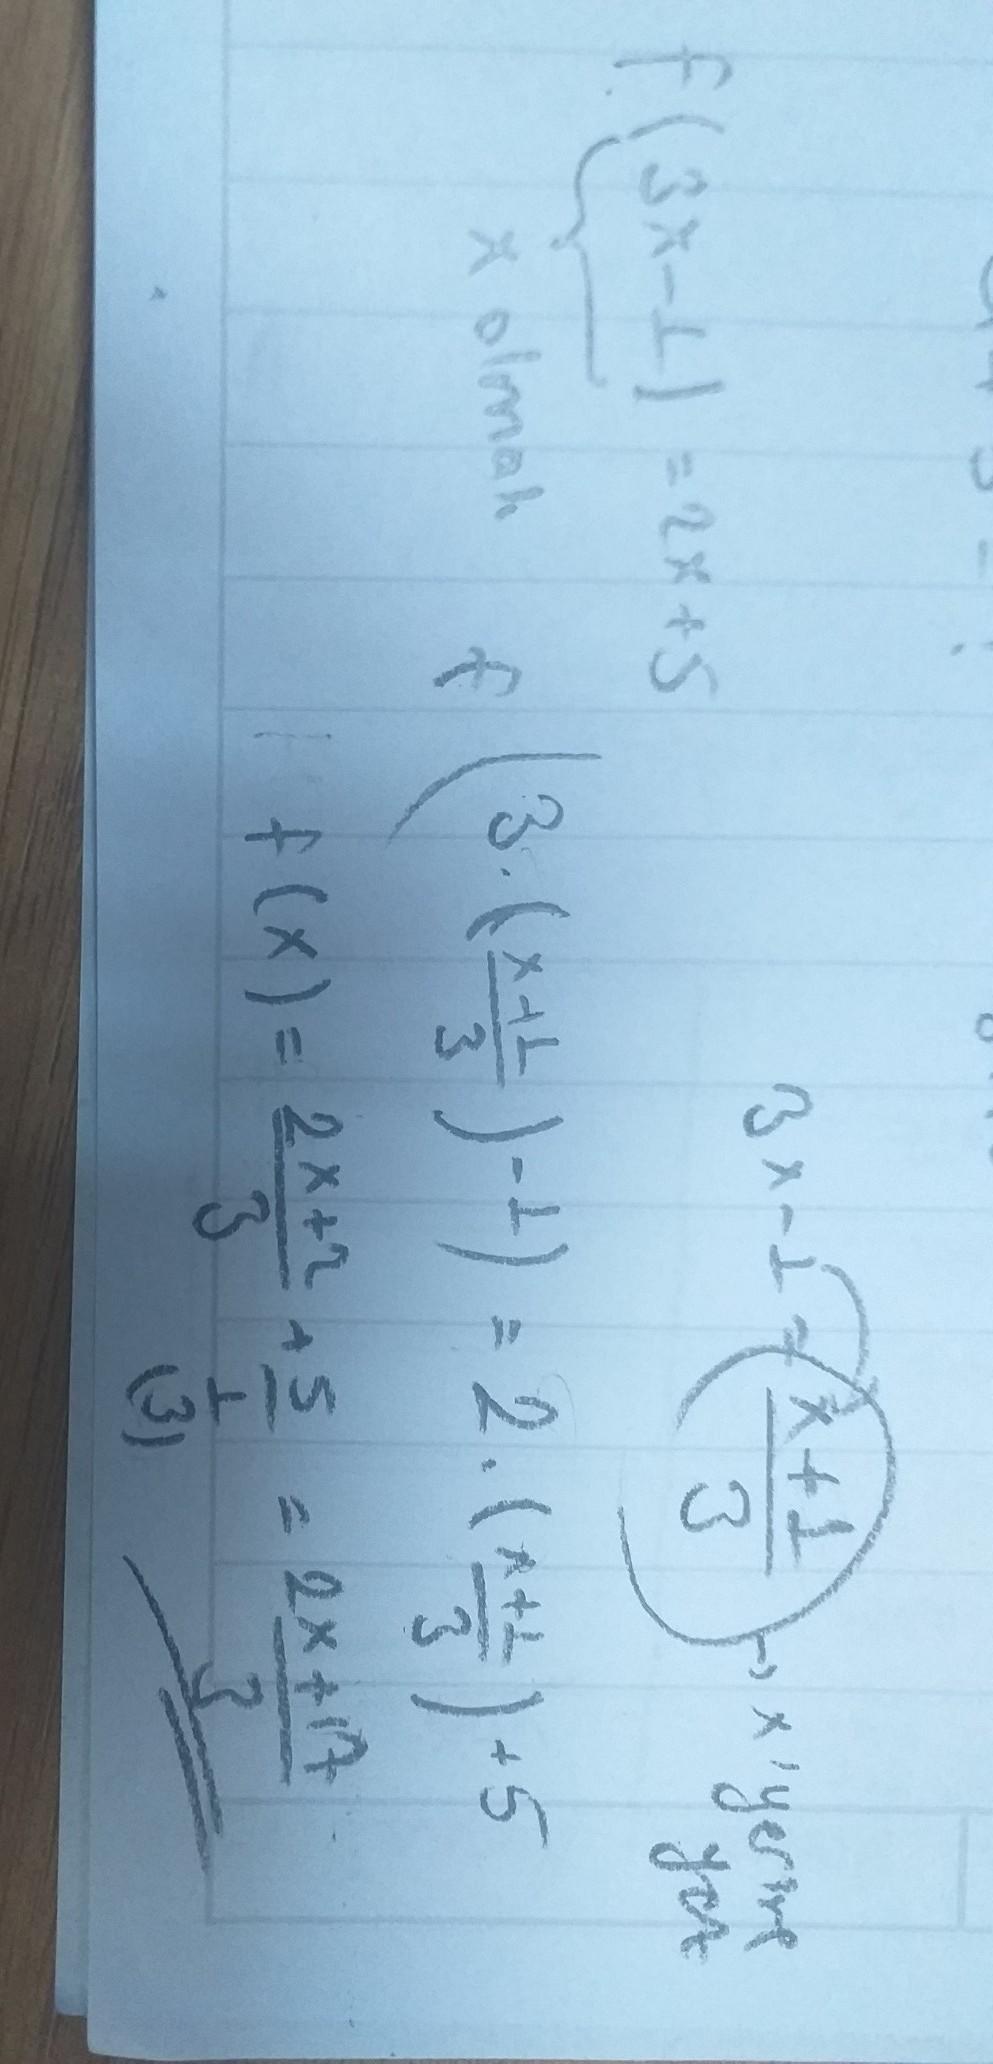 f(3x-1) = 2x+5
x olmalı
3x-1 = (x+1)/3 → x'yerine
yaz
f(3.((x+1)/3)-1) = 2.((x+1)/3)+5
f(x) = (2x+2)/3 + 5/1 = (2x+17)/3
(3)